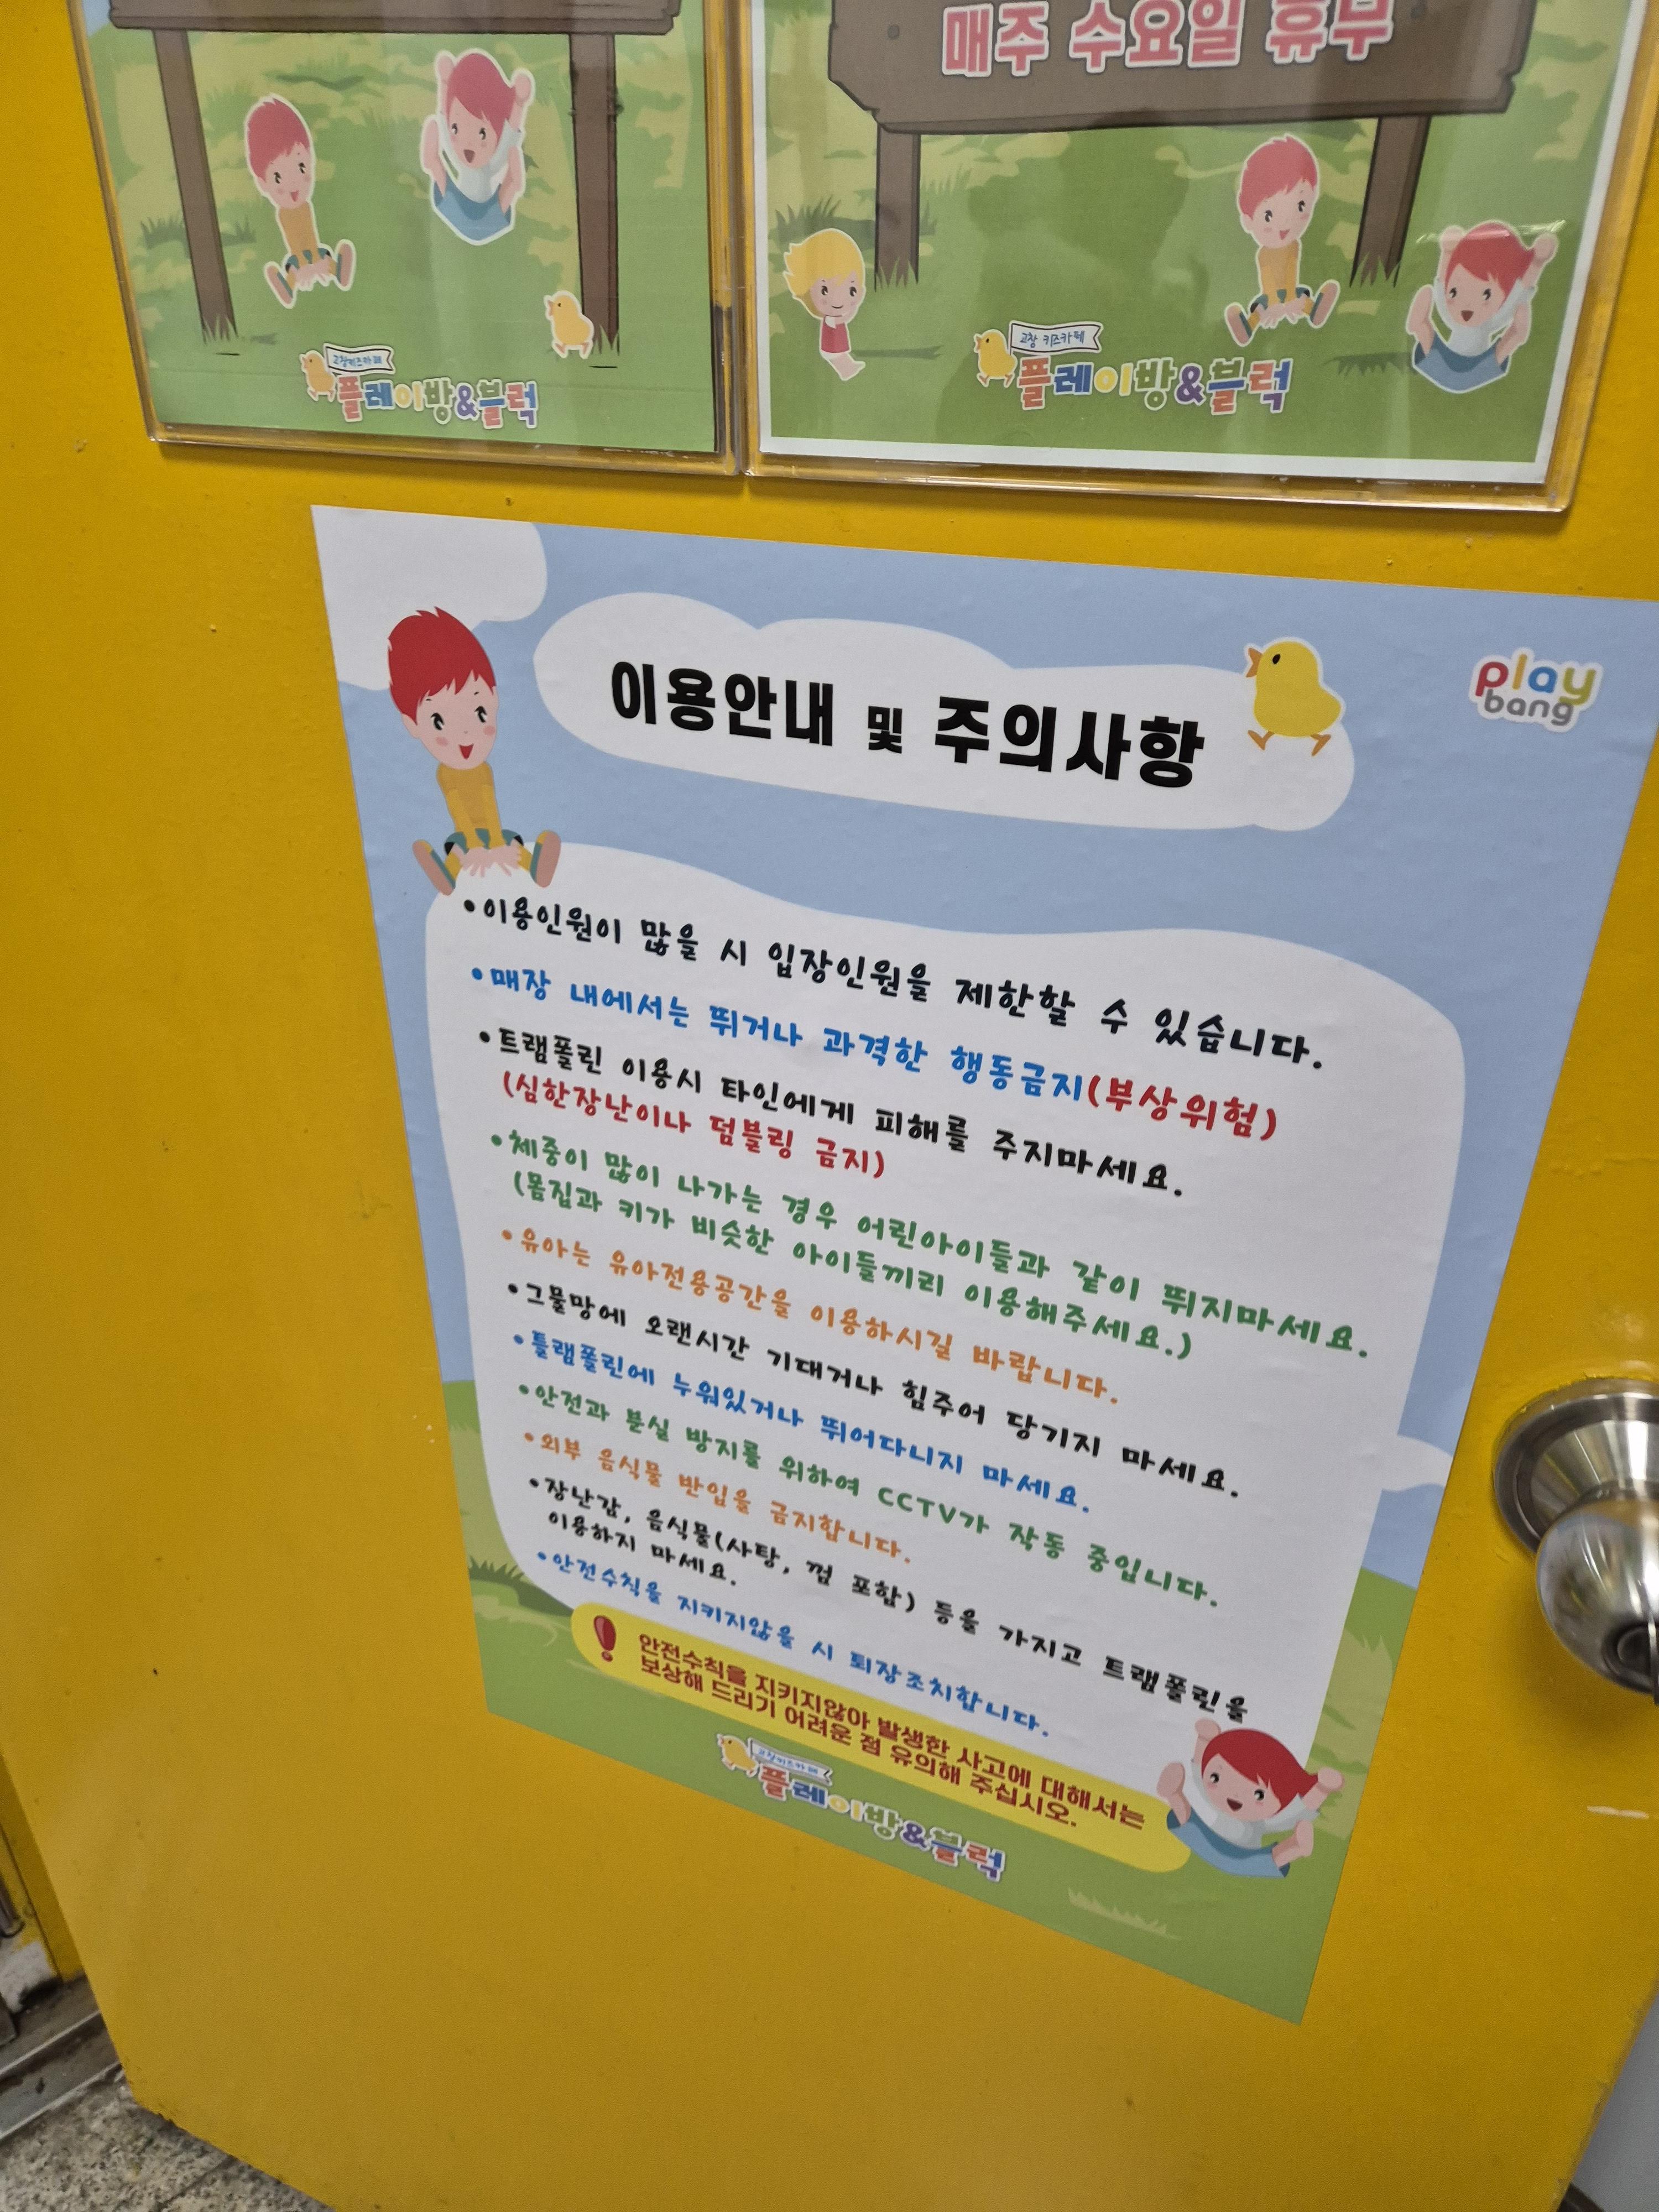 매주 수요일 휴무
고창키즈카페
플레이방&블럭
고창 키즈카페
플레이방&블럭
play
bang
이용안내 및 주의사항
•이용인원이 많을 시 입장인원을 제한할 수 있습니다.
•매장 내에서는 뛰거나 과격한 행동금지(부상위험)
•트램폴린 이용시 타인에게 피해를 주지마세요.
(심한장난이나 덤블링 금지)
•체중이 많이 나가는 경우 어린아이들과 같이 뛰지마세요.
(몸집과 키가 비슷한 아이들끼리 이용해주세요.)
•유아는 유아전용공간을 이용하시길 바랍니다.
•그물망에 오랜시간 기대거나 힘주어 당기지 마세요.
•틀램폴린에 누워있거나 뛰어다니지 마세요.
•안전과 분실 방지를 위하여 CCTV가 작동 중입니다.
•외부 음식물 반입을 금지합니다.
•장난감, 음식물(사탕, 껌 포함) 등을 가지고 트램폴린을
이용하지 마세요.
•안전수칙을 지키지않을 시 퇴장조치합니다.
! 안전수칙을 지키지않아 발생한 사고에 대해서는
보상해 드리기 어려운 점 유의해 주십시오.
고창키즈카페
플레이방&블럭